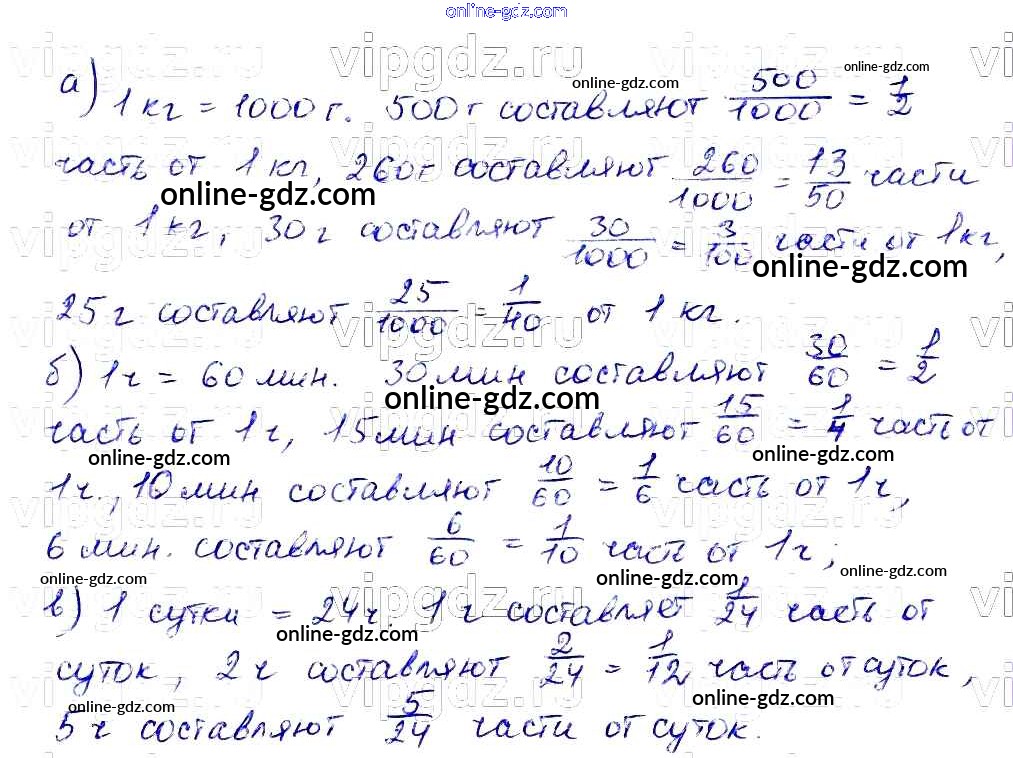 online-gdz.com
vipgdz.ru vipgdz.ru vipgdz.ru vi
online-gdz.com online-gdz.com
а) 1 кг = 1000 г. 500 г составляют 500/1000 = 1/2
часть от 1 кг, 260 г составляют 260/1000 = 13/50 части
online-gdz.com
от 1 кг, 30 г составляют 30/1000 = 3/100 части от 1 кг,
online-gdz.com
25 г составляют 25/1000 = 1/40 от 1 кг.
б) 1 ч = 60 мин. 30 мин составляют 30/60 = 1/2
online-gdz.com
часть от 1 ч, 15 мин составляют 15/60 = 1/4 часть от
online-gdz.com online-gdz.com
1 ч., 10 мин составляют 10/60 = 1/6 часть от 1 ч,
6 мин. составляют 6/60 = 1/10 часть от 1 ч;
online-gdz.com online-gdz.com online-gdz.com
в) 1 сутки = 24 ч. 1 ч составляет 1/24 часть от
online-gdz.com
суток, 2 ч составляют 2/24 = 1/12 часть от суток,
online-gdz.com online-gdz.com
5 ч составляют 5/24 части от суток.